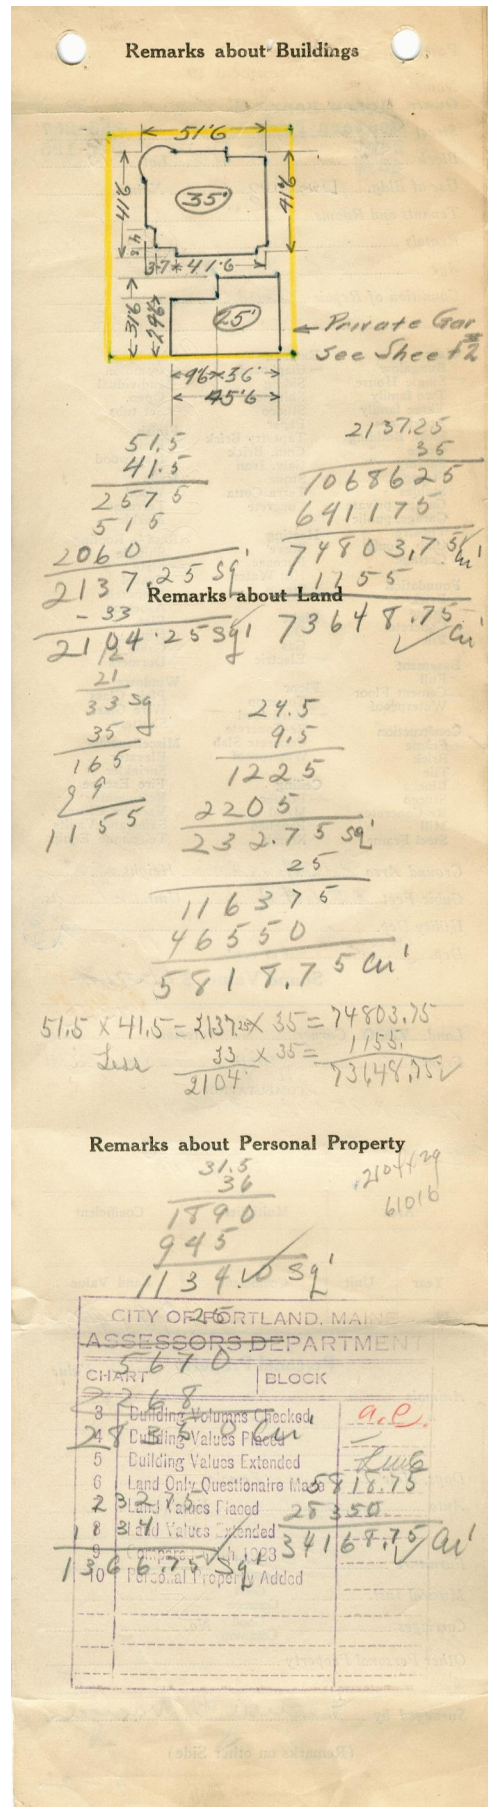 Remarks about Buildings
51'6
41'6
35'
41'6
4'8
3-7*41'6
31'6
24'6
25'
← Private Gar
See Sheet #2
9'6 × 36'
45'6
51.5
41.5
2575
515
2060
2137.25 sq'
- 33
2104.25 sq'
2137.25
35
1068625
641175
74803.75 Cu'
1155
73648.75 Cu'
Remarks about Land
12
21
33 sq
35
165
99
1155
24.5
9.5
1225
2205
232.75 sq'
25
116375
46550
5818.75 Cu'
51.5 × 41.5 = 2137.25 × 35 = 74803.75
Less 33 × 35 = 1155.
2104 73648.75
Remarks about Personal Property
31.5
36
1890
945
1134.0 sq'
2104 × 29
61016
25
5670
2268
28350 Cu'
CITY OF PORTLAND, MAINE
ASSESSORS DEPARTMENT
CHART BLOCK
3 Building Volumns Checked a.c.
4 Building Values Placed
5 Building Values Extended
6 Land Only Questionaire Made
7 Land Values Placed
8 Land Values Extended
9 Compare with 1923
10 Personal Property Added
5818.75
28350
34168.75 Cu'
232.75
1134
1366.75 sq'